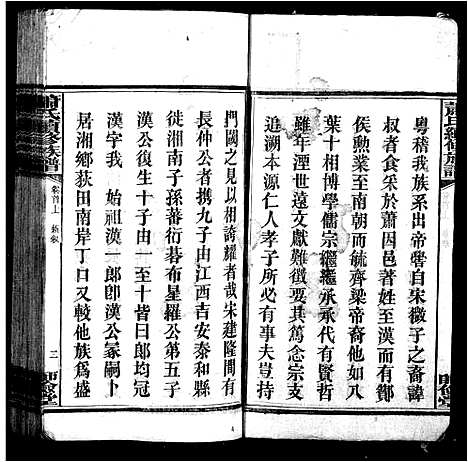 蕭氏續修族譜
粵稽我族系出帝嚳自宋微子之裔諱
叔者食采於蕭因邑著姓至漢而酇
侯勳業至南朝而毓齊梁帝裔他如八
葉十相博學儒宗繼繼承承代有賢哲
雖年湮世遠文獻難徵要其篤念宗支
追溯本源仁人孝子所必有事夫豈持
門國之見以相誇耀者哉宋建隆間有
長仲公者携九子由江西吉安泰和縣
徙湘南子孫蕃衍碁布星羅公第五子
漢公復生子十由一至十皆曰郎均冠
漢字我 始祖漢一郎卽漢公冢嗣卜
居湘鄉荻田南岸丁口又較他族爲盛
蕭氏續修族譜
卷首上
三